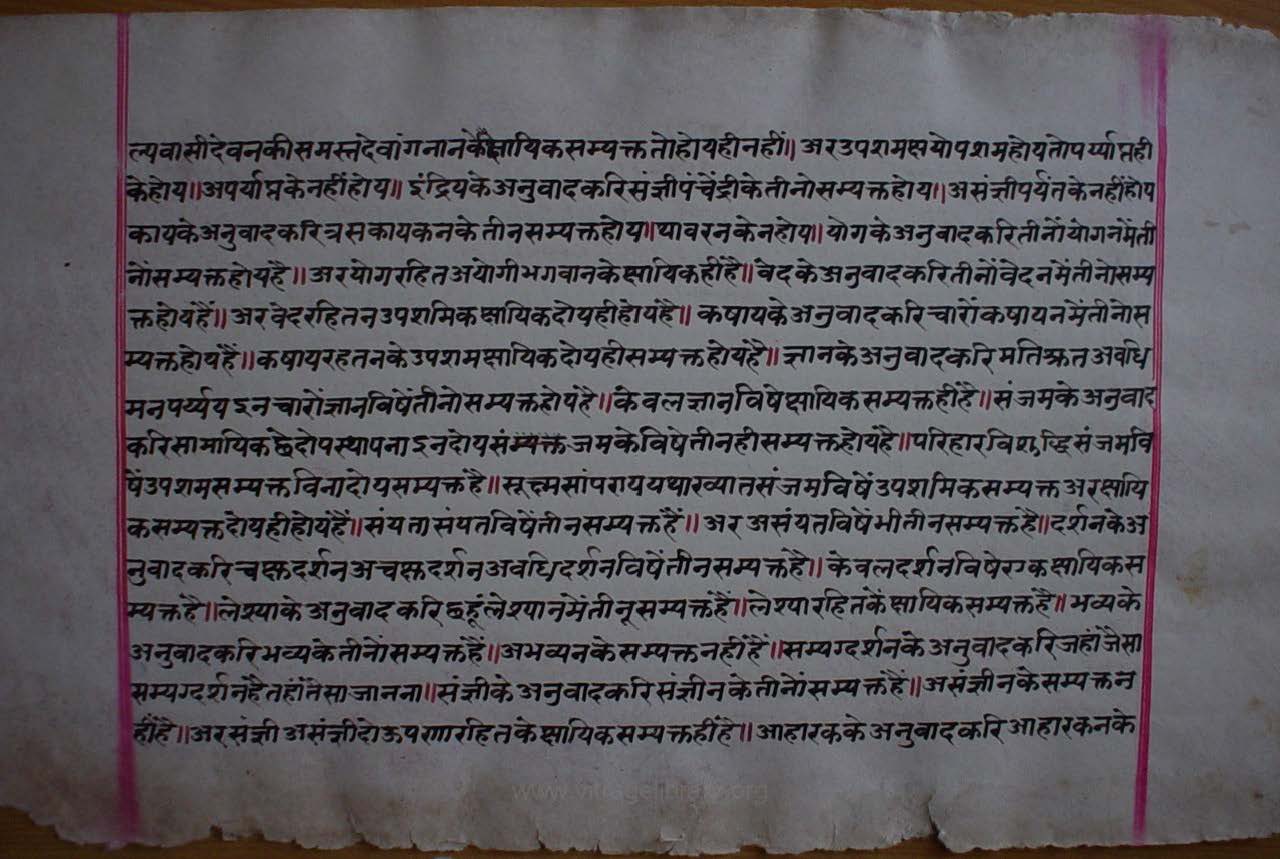 ल्पवासीदेवनकीसमस्तदेवांगनानकेक्षायिकसम्यक्ततोहोयहीनहीं॥ अरउपशमक्षयोपशमहोयतोपर्य्याप्तही
केहोय॥अपर्याप्तकेनहींहोय॥ इंद्रियकेअनुवादकरिसंज्ञीपंचेंद्रीकेतीनोसम्यक्तहोय॥असंज्ञीपर्यंतकेनहींहोय
कायकेअनुवादकरित्रसकायकनकेतीनसम्यक्तहोय॥थावरनकेनहोय॥योगकेअनुवादकरितीनोंयोगनमेंती
नोंसम्यक्तहोयहै॥अरयोगरहितअयोगीभगवानकेक्षायिकहींहै॥वेदकेअनुवादकरितीनोंवेदनमेंतीनोसम्य
क्तहोयहैं॥अरवेदरहितनउपशमिकक्षायिकदोयहीहोयहै॥ कषायकेअनुवादकरिचारोंकषायनमेंतीनोस
म्यक्तहोयहैं॥कषायरहतनकेउपशमक्षायिकदोयहीसम्यक्तहोयहै॥ज्ञानकेअनुवादकरिमतिश्रुतअवधि
मनपर्य्ययइनचारोंज्ञानविषेंतीनोसम्यक्तहोयहै॥केवलज्ञानविषेक्षायिकसम्यक्तहींहै॥संजमकेअनुवाद
करिसामायिकछेदोपस्थापनाइनदोयसंम्यक्तजमकेविषेतीनहीसम्यक्तहोयहै॥परिहारविशुद्धिसंजमवि
षेंउपशमसम्यक्तविनादोयसम्यक्तहै॥सूक्ष्मसांपराययथाख्यातसंजमविषेंउपशमिकसम्यक्तअरक्षायि
कसम्यक्तदोयहीहोयहैं॥संयतासंयतविषेंतीनसम्यक्तहैं॥ अरअसंयतविषेंभीतीनसम्यक्तहै॥दर्शनकेअ
नुवादकरिचक्षदर्शनअचक्षदर्शनअवधिदर्शनविषेंतीनसम्यक्तहै॥केवलदर्शनविषेएकक्षायिकस
म्यक्तहै॥लेश्याकेअनुवादकरिछहूंलेश्यानमेंतीनूसम्यक्तहैं॥लेश्यारहितकेंक्षायिकसम्यक्तहै॥भव्यके
अनुवादकरिभव्यकेतीनोंसम्यक्तहैं॥अभव्यनकेसम्यक्तनहींहैं॥सम्यग्दर्शनकेअनुवादकरिजहांजैसा
सम्यग्दर्शनहैतहांतैसाजानना॥संज्ञीकेअनुवादकरिसंज्ञीनकेतीनोंसम्यक्तहैं॥असंज्ञीनकेसम्यक्तन
हींहै॥अरसंज्ञीअसंज्ञीदोऊपणारहितकेक्षायिकसम्यक्तहींहै॥आहारककेअनुवादकरिआहारकनके
www.vitragelibrary.org